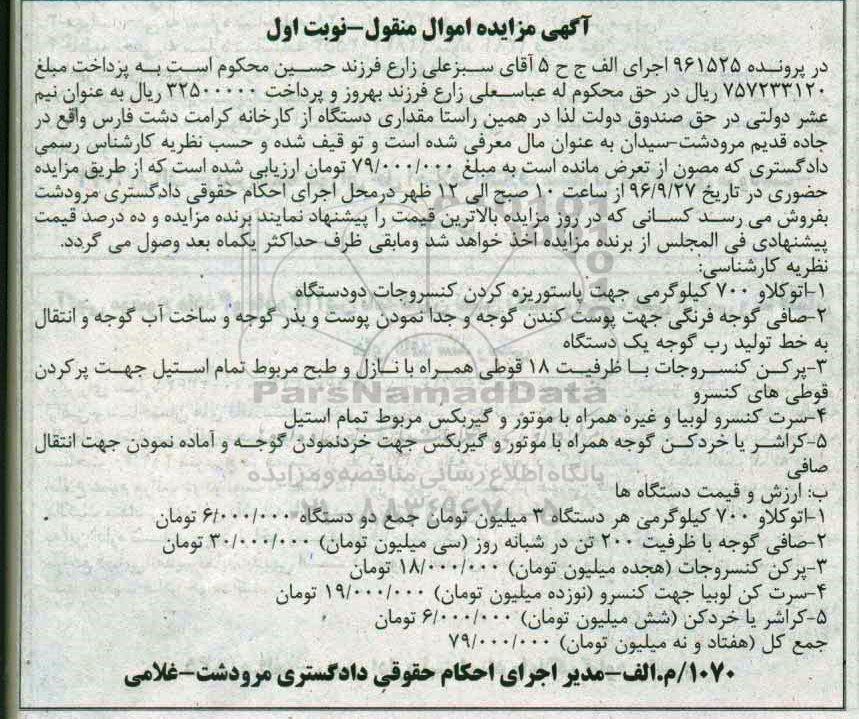 آگهی مزایده اموال منقول-نوبت اول
در پرونده ۹۶۱۵۲۵ اجرای الف ج ح ۵ آقای سبزعلی زارع فرزند حسین محکوم است به پرداخت مبلغ
۷۵۷۲۳۳۱۲۰ ریال در حق محکوم له عباسعلی زارع فرزند بهروز و پرداخت ۳۲۵۰۰۰۰۰ ریال به عنوان نیم
عشر دولتی در حق صندوق دولت لذا در همین راستا مقداری دستگاه از کارخانه کرامت دشت فارس واقع در
جاده قدیم مرودشت-سیدان به عنوان مال معرفی شده است و تو قیف شده و حسب نظریه کارشناس رسمی
دادگستری که مصون از تعرض مانده است به مبلغ ۷۹/۰۰۰/۰۰۰ تومان ارزیابی شده است که از طریق مزایده
حضوری در تاریخ ۹۶/۹/۲۷ از ساعت ۱۰ صبح الی ۱۲ ظهر درمحل اجرای احکام حقوقی دادگستری مرودشت
بفروش می رسد کسانی که در روز مزایده بالاترین قیمت را پیشنهاد نمایند برنده مزایده و ده درصد قیمت
پیشنهادی فی المجلس از برنده مزایده اخذ خواهد شد ومابقی ظرف حداکثر یکماه بعد وصول می گردد.
نظریه کارشناسی:
۱-اتوکلاو ۷۰۰ کیلوگرمی جهت پاستوریزه کردن کنسروجات دودستگاه
۲-صافی گوجه فرنگی جهت پوست کندن گوجه و جدا نمودن پوست و بذر گوجه و ساخت آب گوجه و انتقال
به خط تولید رب گوجه یک دستگاه
۳-پرکن کنسروجات با ظرفیت ۱۸ قوطی همراه با نازل و طبح مربوط تمام استیل جهت پرکردن
قوطی های کنسرو
۴-سرت کنسرو لوبیا و غیره همراه با موتور و گیربکس مربوط تمام استیل
۵-کراشر یا خردکن گوجه همراه با موتور و گیربکس جهت خردنمودن گوجه و آماده نمودن جهت انتقال
صافی
ب: ارزش و قیمت دستگاه ها
۱-اتوکلاو ۷۰۰ کیلوگرمی هر دستگاه ۳ میلیون تومان جمع دو دستگاه ۶/۰۰۰/۰۰۰ تومان
۲-صافی گوجه با ظرفیت ۲۰۰ تن در شبانه روز (سی میلیون تومان) ۳۰/۰۰۰/۰۰۰ تومان
۳-پرکن کنسروجات (هجده میلیون تومان) ۱۸/۰۰۰/۰۰۰ تومان
۴-سرت کن لوبیا جهت کنسرو (نوزده میلیون تومان) ۱۹/۰۰۰/۰۰۰ تومان
۵-کراشر یا خردکن (شش میلیون تومان) ۶/۰۰۰/۰۰۰ تومان
جمع کل (هفتاد و نه میلیون تومان) ۷۹/۰۰۰/۰۰۰
۱۰۷۰/م.الف-مدیر اجرای احکام حقوقی دادگستری مرودشت-غلامی
ParsNamadData
پایگاه اطلاع رسانی مناقصه و مزایده